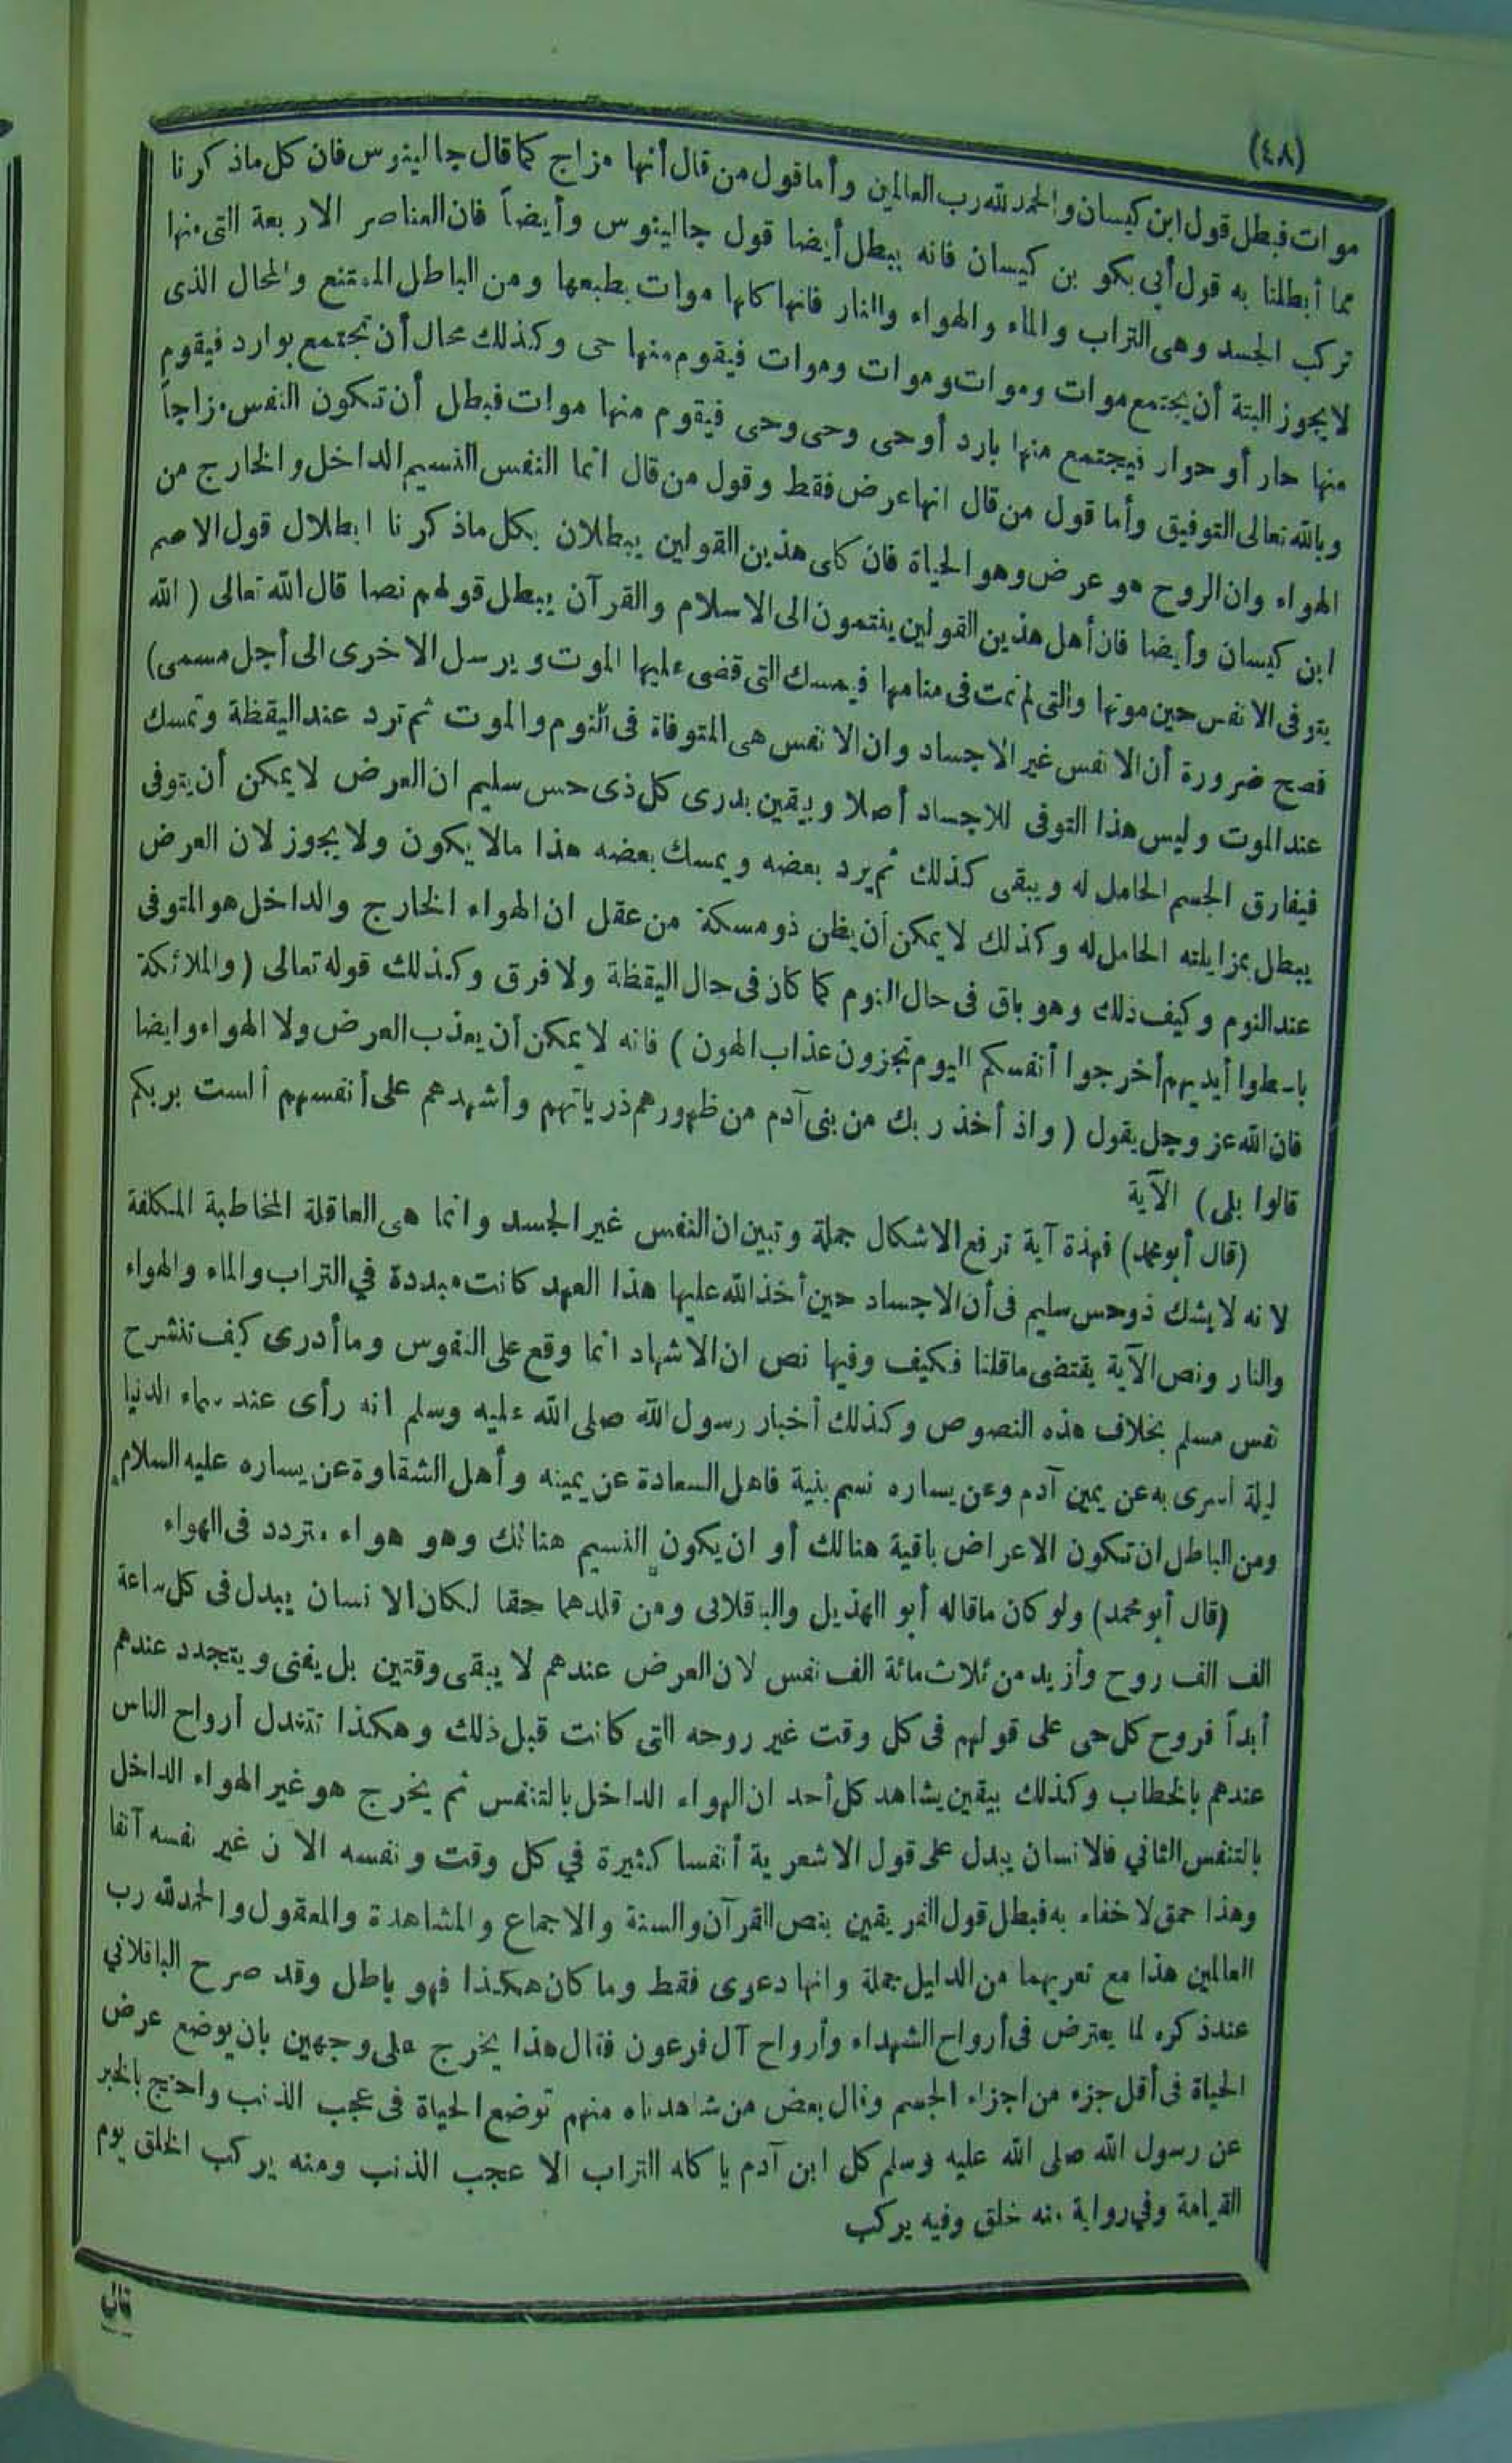 (٤٨)
موات فبطل قول ابن كيسان والحمد لله رب العالمين وأما قول من قال أنها مزاج كما قال جالينوس فان كل ماذكرنا
مما أبطلنا به قول أبى بكر بن كيسان فانه يبطل أيضا قول جالينوس وأيضاً فان العناصر الاربعة التى منها
تركب الجسد وهى التراب والماء والهواء والنار فانها كلها موات بطبعها ومن الباطل الممتنع والمحال الذى
لا يجوز البتة أن يجتمع موات وموات وموات وموات فيقوم منها حى وكذلك محال أن تجتمع بوارد فيقوم
منها حار أو حوار فيجتمع منها بارد أو حى وحى وحى فيقوم منها موات فبطل أن تكون النفس مزاجاً
وبالله تعالى التوفيق وأما قول من قال انها عرض فقط وقول من قال انما النفس النسيم الداخل والخارج من
الهواء وان الروح هو عرض وهو الحياة فان كلى هذين القولين يبطلان بكل ماذكرنا ابطلال قول الاصم
ابن كيسان وأيضا فان أهل هذين القولين ينتمون الى الاسلام والقرآن يبطل قولهم نصا قال الله تعالى ( الله
يتوفى الانفس حين موتها والتى لم تمت فى منامها فيمسك التى قضى عليها الموت ويرسل الاخرى الى أجل مسمى)
فصح ضرورة أن الانفس غير الاجساد وان الانفس هى المتوفاة فى النوم والموت ثم ترد عند اليقظة وتمسك
عند الموت وليس هذا التوفى للاجساد أصلا وبيقين يدرى كل ذى حس سليم ان العرض لا يمكن أن يتوفى
فيفارق الجسم الحامل له ويبقى كذلك ثم يرد بعضه ويمسك بعضه هذا مالا يكون ولا يجوز لان العرض
يبطل بمزايلته الحامل له وكذلك لا يمكن أن يظن ذو مسكة من عقل ان الهواء الخارج والداخل هو المتوفى
عند النوم وكيف ذلك وهو باق فى حال النوم كما كان فى حال اليقظة ولا فرق وكذلك قوله تعالى (والملائكة
باسطوا أيديهم أخرجوا أنفسكم اليوم تجزون عذاب الهون ) فانه لا يمكن أن يعذب العرض ولا الهواء وايضا
فان الله عز وجل يقول ( واذ أخذ ربك من بنى آدم من ظهورهم ذرياتهم وأشهدهم على أنفسهم ألست بربكم
قالوا بلى) الآية
(قال أبو محمد) فهذة آية ترفع الاشكال جملة وتبين ان النفس غير الجسد وانما هى العاقلة المخاطبة المكلفة
لانه لا يشك ذو حس سليم فى أن الاجساد حين أخذ الله عليها هذا العهد كانت مبددة في التراب والماء والهواء
والنار ونص الآية يقتضى ماقلنا فكيف وفيها نص ان الاشهاد انما وقع على النفوس وما أدرى كيف تنشرح
نفس مسلم بخلاف هذه النصوص وكذلك أخبار رسول الله صلى الله عليه وسلم انه رأى عند سماء الدنيا
ليلة اسرى به عن يمين آدم وعن يساره نسم بنية فاهل السعادة عن يمينه وأهل الشقاوة عن يساره عليه السلام
ومن الباطل ان تكون الاعراض باقية هنالك أو ان يكون النسيم هنالك وهو هواء متردد فى الهواء
(قال أبو محمد) ولو كان ماقاله أبو الهذيل والباقلانى ومن قلدهما حقا لكان الانسان يبدل فى كل ساعة
الف الف روح وأزيد من ثلاث مائة الف نفس لان العرض عندهم لا يبقى وقتين بل يفنى ويتجدد عندهم
أبداً فروح كل حى على قولهم فى كل وقت غير روحه التى كانت قبل ذلك وهكذا تتبدل أرواح الناس
عندهم بالخطاب وكذلك بيقين يشاهد كل أحد ان الهواء الداخل بالتنفس ثم يخرج هو غير الهواء الداخل
بالتنفس الثاني فالانسان يبدل على قول الاشعرية أنفسا كثيرة في كل وقت ونفسه الا ن غير نفسه آنفا
وهذا حمق لا خفاء به فبطل قول الفريقين بنص القرآن والسنة والاجماع والمشاهدة والمعقول والحمد لله رب
العالمين هذا مع تعريهما من الدليل جملة وانها دعوى فقط وما كان هكذا فهو باطل وقد صرح الباقلاني
عند ذكره لما يعترض فى أرواح الشهداء وأرواح آل فرعون فقال هذا يخرج على وجهين بان يوضع عرض
الحياة فى أقل جزء من اجزاء الجسم وقال بعض من شاهدناه منهم توضع الحياة فى عجب الذنب واحتج بالخبر
عن رسول الله صلى الله عليه وسلم كل ابن آدم ياكله التراب الا عجب الذنب ومنه يركب الخلق يوم
القيامة وفي رواية منه خلق وفيه يركب
قال